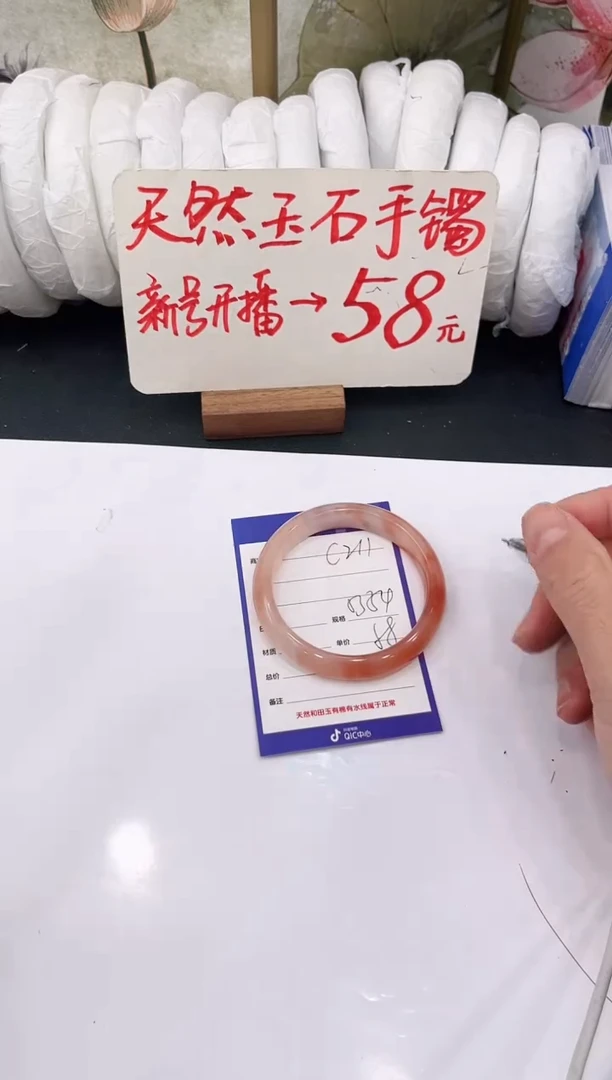 天然玉石手镯
新号开播→58元
C211
规格
单价
材质
总价
备注
天然和田玉有棉有水线属于正常
QIC中心